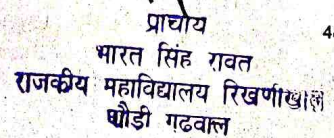 प्राचार्य 4
भारत सिंह रावत
राजकीय महाविद्यालय रिखणीखाल
पौड़ी गढवाल